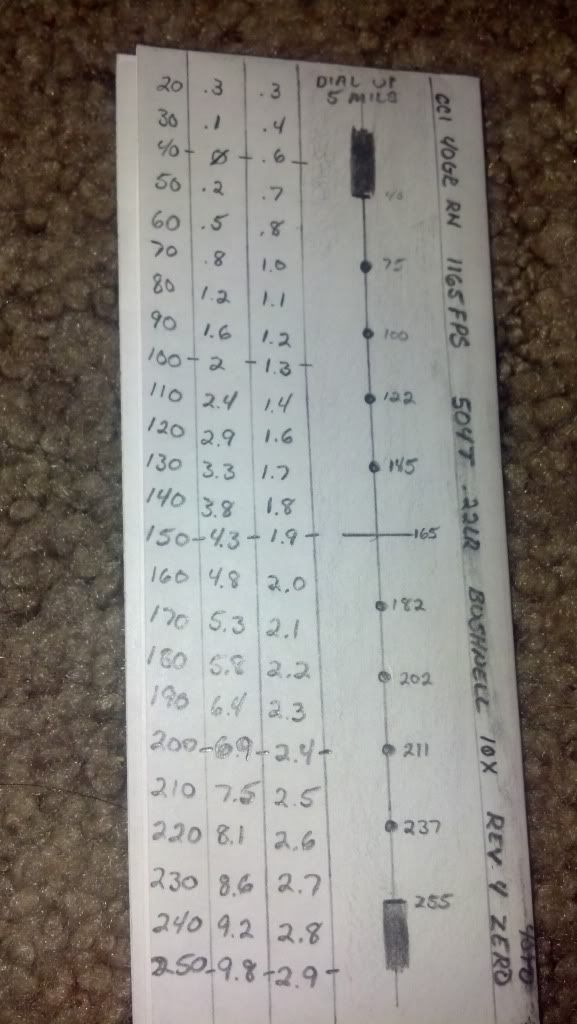 20 .3 .3
30 .1 .4
40 - Ø - .6 -
50 .2 .7
60 .5 .8
70 .8 1.0
80 1.2 1.1
90 1.6 1.2
100 - 2 - 1.3 -
110 2.4 1.4
120 2.9 1.6
130 3.3 1.7
140 3.8 1.8
150 - 4.3 - 1.9 -
160 4.8 2.0
170 5.3 2.1
180 5.8 2.2
190 6.4 2.3
200 - 6.9 - 2.4 -
210 7.5 2.5
220 8.1 2.6
230 8.6 2.7
240 9.2 2.8
250 - 9.8 - 2.9 -
DIAL UP
5 MILS
40
75
100
122
145
165
182
202
211
237
255
CCI 40GR RN 1165FPS 504T .22LR BUSHNELL 10X REV. 4 ZERO